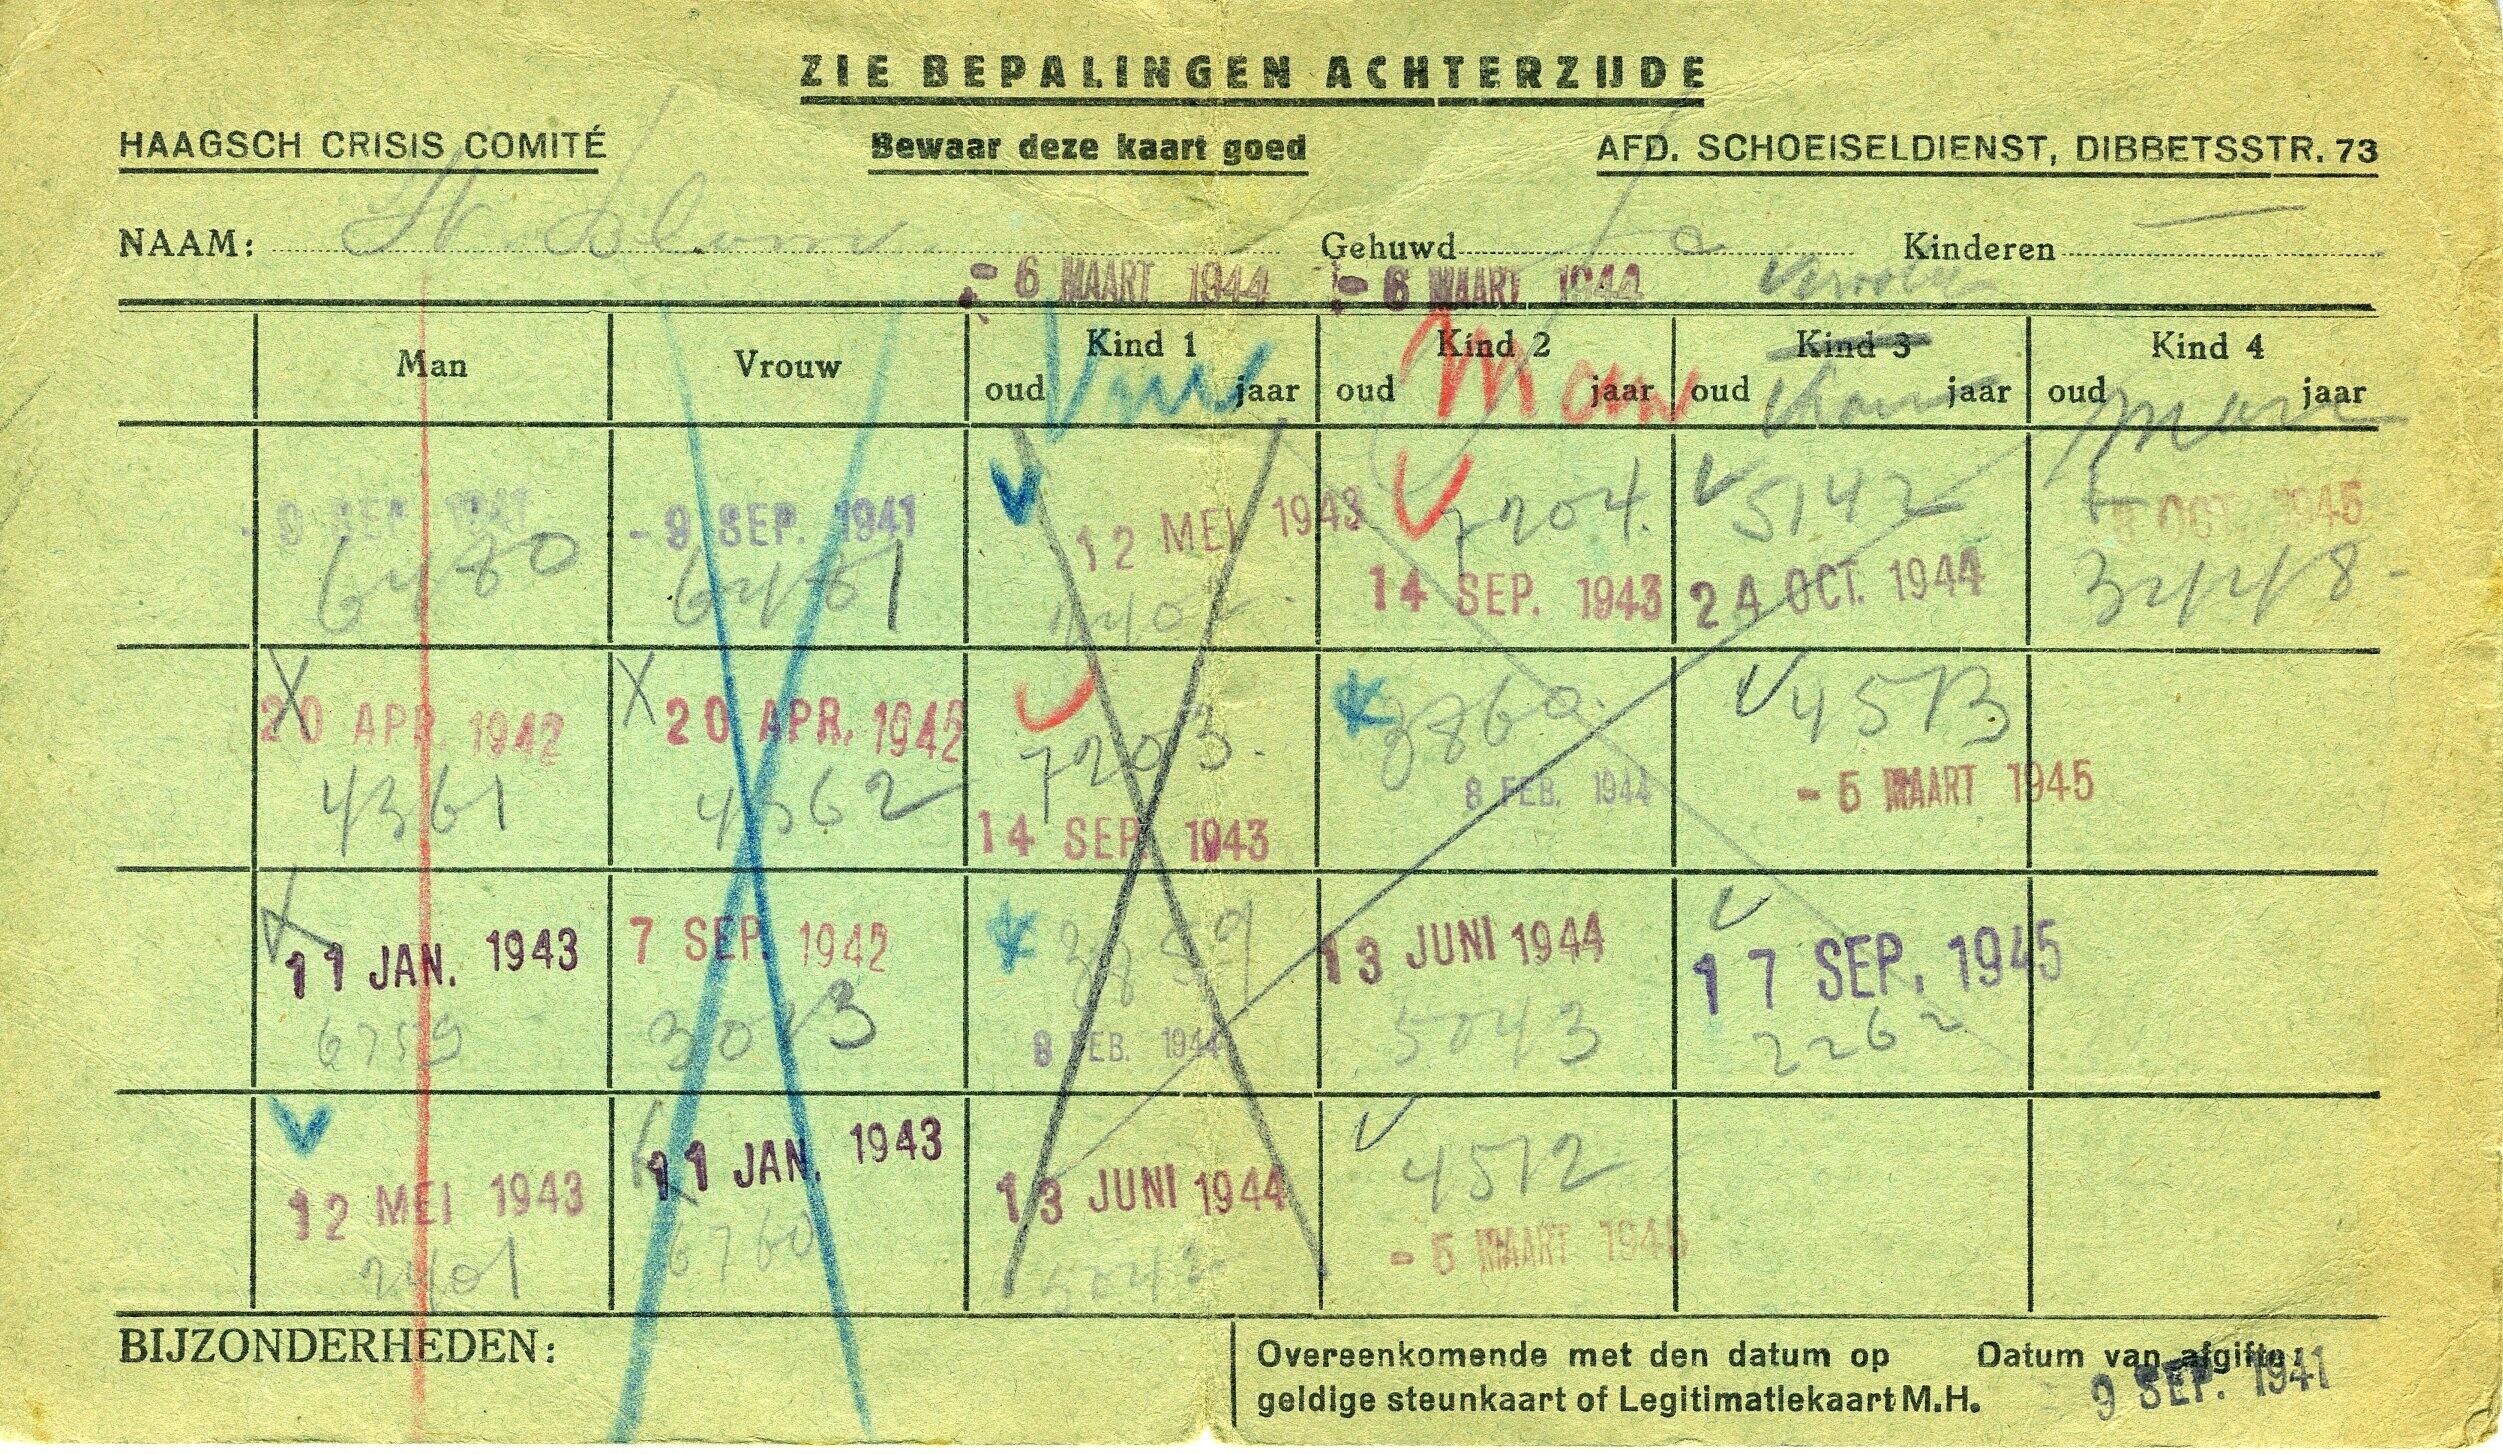 ZIE BEPALINGEN ACHTERZIJDE
HAAGSCH CRISIS COMITÉ Bewaar deze kaart goed AFD. SCHOEISELDIENST, DIBBETSSTR. 73
NAAM: Gehuwd Kinderen
- 6 MAART 1944 - 6 MAART 1944
Man Vrouw Kind 1 Kind 2 Kind 3 Kind 4
oud Vrw jaar oud Man jaar oud jaar oud Man jaar
- 9 SEP. 1941 - 9 SEP. 1941 12 MEI 1943 7204. 5142 OCT. 1945
6480 6481 14 SEP. 1943 24 OCT. 1944 3448-
20 APR. 1942 20 APR. 1942 7203. 3860. 4513
4361 4362 14 SEP. 1943 8 FEB. 1944 - 5 MAART 1945
11 JAN. 1943 7 SEP. 1942 3859 13 JUNI 1944 17 SEP. 1945
6759 8 FEB. 1944 5043 2262
12 MEI 1943 11 JAN. 1943 13 JUNI 1944 4512
2401 6760 5042 - 5 MAART 1945
BIJZONDERHEDEN: Overeenkomende met den datum op Datum van afgifte:
geldige steunkaart of Legitimatiekaart M.H. 9 SEP. 1941